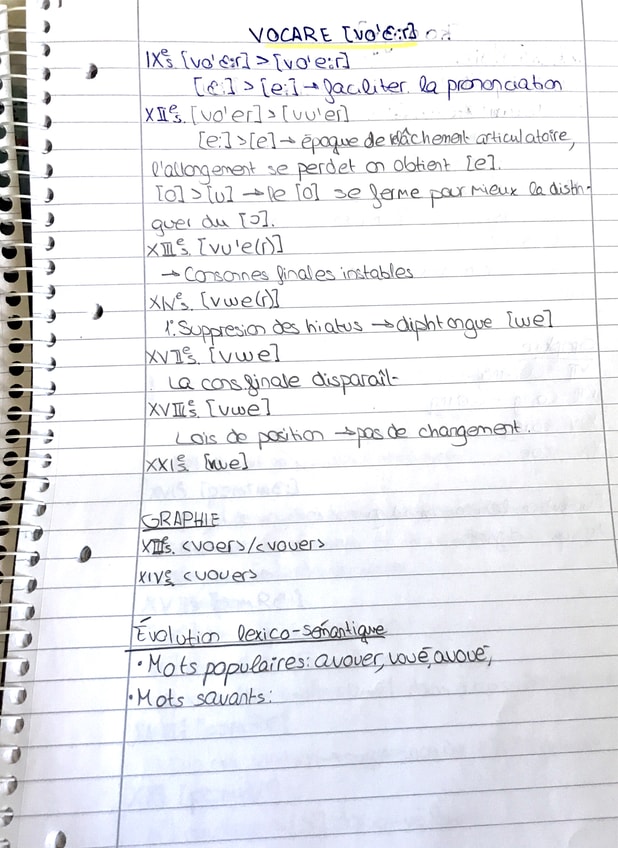 VOCARE [vo'ɛ:r]
IXᵉs. [vo'ɛ:r] > [vo'e:r]
[ɛ:] > [e:] → faciliter la prononciation
XIIᵉs. [vo'er] > [vu'er]
[e:] > [e] → époque de relâchement articulatoire,
l'allongement se perd et on obtient [e].
[o] > [u] → le [o] se ferme pour mieux la distin-
guer du [ɔ].
XIIIᵉs. [vu'e(r)]
→ Consonnes finales instables
XIVᵉs. [vwe(r)]
1: Suppresion des hiatus → diphtongue [we]
XVIIᵉs. [vwe]
La cons finale disparaît
XVIIIᵉs. [vwe]
Lois de position → pas de changement.
XXIᵉs [vwe]
GRAPHIE
XIIᵉs. <voer>/<vouer>
XIVᵉs <vouer>
Évolution lexico-sémantique
• Mots populaires: avouer, voué, avoué,
• Mots savants: